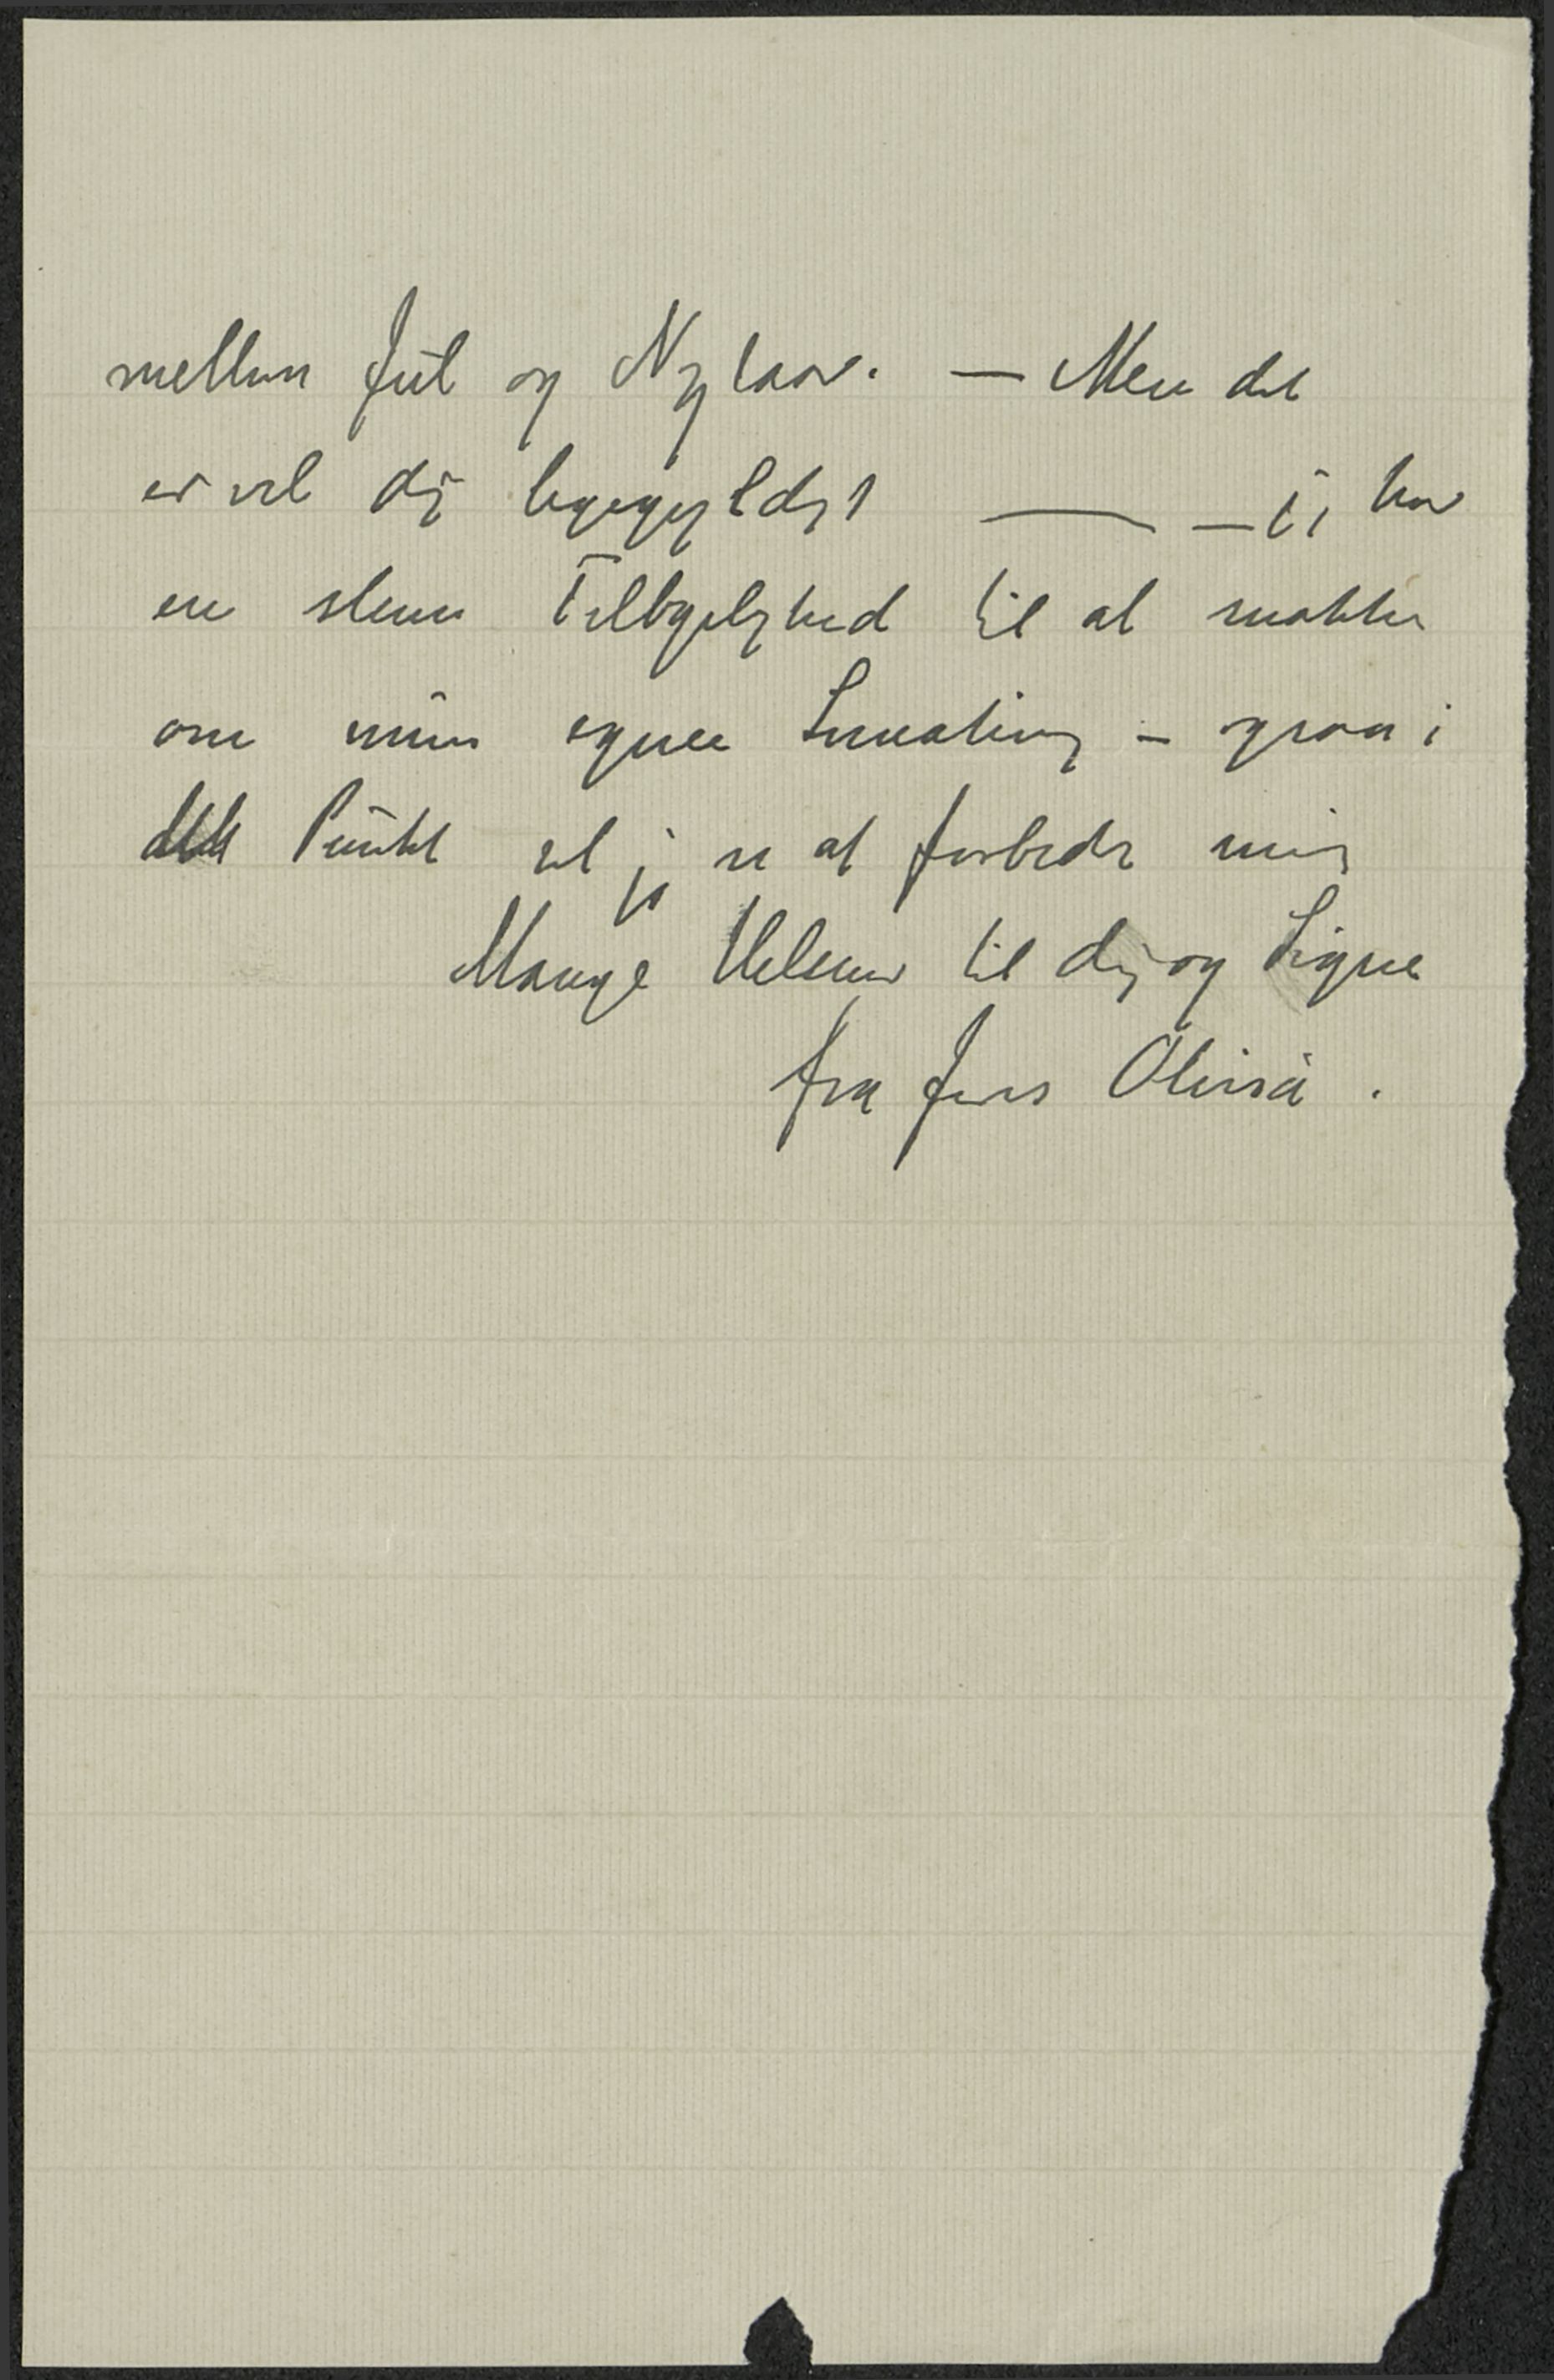 mellem Jul og Nytaar. — Men det
er vel dig ligegyldigt — — jeg har
en slem Tilbøjelighed til at snakke
om min egen — ogsaa i
dette Punkt vil jeg se at forbedre mig
Mange Hilsener til dig og Signe
fra Jens Olivia.